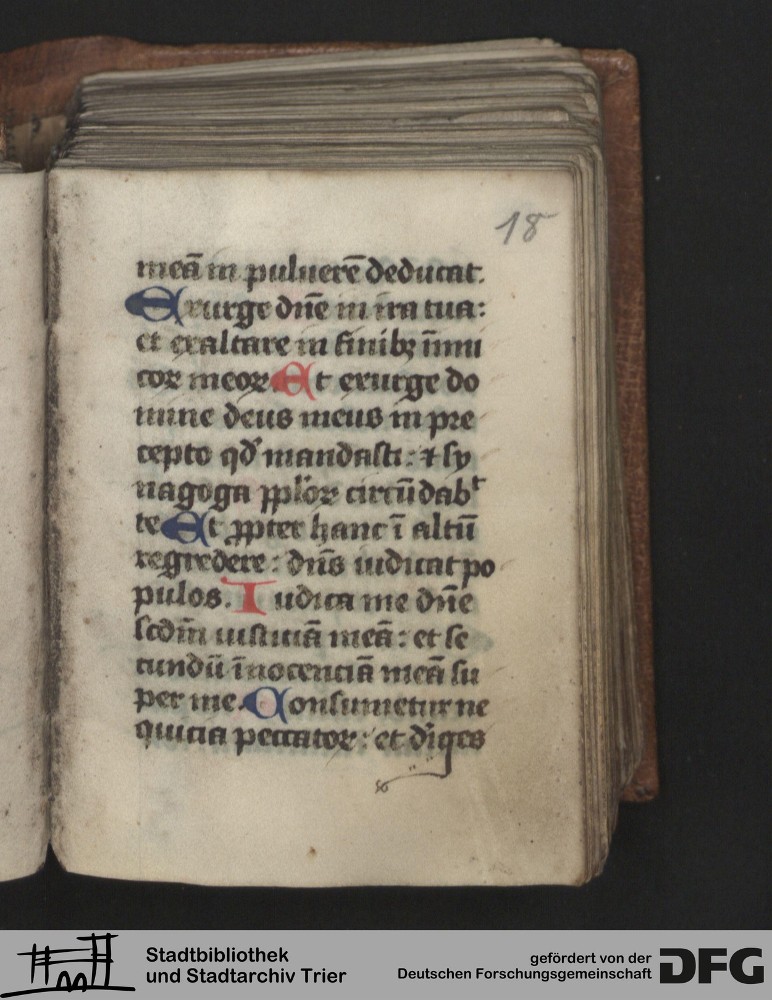 18
meā in puluerē deducat.
Exurge dn̄e in ira tua:
et exaltare in finibꝫ īimi
coꝝ meoꝝ Et exurge do
mine deus meus in pre
cepto qđ mandasti: ⁊ sy
nagoga ppl'oꝝ circūdabᵗ
te Et ꝓpter hanc ī altū
regredere: dn̄s iudicat po
pulos. Iudica me dn̄e
scd̄m iusticiā meā: et se
cundū īnocenciā meā su
per me. Consumetur ne
quicia peccatoꝝ: et dīges
Stadtbibliothek
und Stadtarchiv Trier
gefördert von der
Deutschen Forschungsgemeinschaft
DFG